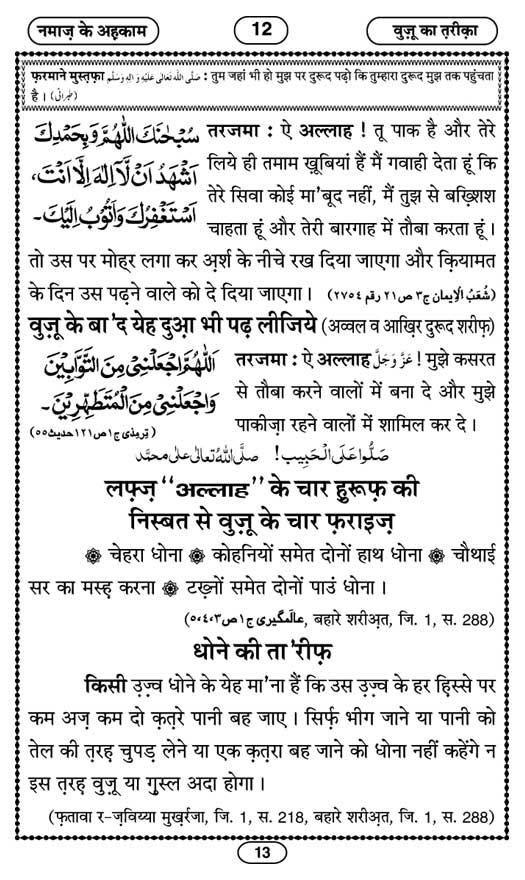 नमाज़ के अह़काम
12
वुज़ू का त़रीक़ा
फ़रमाने मुस्त़फ़ा صَلَّى اللّٰهُ تَعَالٰى عَلَيْهِ وَاٰلِهٖ وَسَلَّم : तुम जहां भी हो मुझ पर दुरूद पढ़ो कि तुम्हारा दुरूद मुझ तक पहुंचता
है । (طبرانی)
سُبْحٰنَكَ اللّٰهُمَّ وَبِحَمْدِكَ तरजमा : ऐ अल्लाह ! तू पाक है और तेरे
اَشْهَدُ اَنْ لَّآ اِلٰهَ اِلَّا اَنْتَ، लिये ही तमाम ख़ूबियां हैं मैं गवाही देता हूं कि
اَسْتَغْفِرُكَ وَاَتُوْبُ اِلَيْكَ۔ तेरे सिवा कोई मा'बूद नहीं, मैं तुझ से बख़्शिश
चाहता हूं और तेरी बारगाह में तौबा करता हूं ।
तो उस पर मोह्‌र लगा कर अ़र्श के नीचे रख दिया जाएगा और क़ियामत
के दिन उस पढ़ने वाले को दे दिया जाएगा । (شُعَبُ الْاِیمان ج۳ ص۲۱ رقم ۲۷۵٤)
वुज़ू के बा'द येह दुआ़ भी पढ़ लीजिये (अव्वल व आख़िर दुरूद शरीफ़)
اَللّٰهُمَّ اجْعَلْنِيْ مِنَ التَّوَّابِيْنَ तरजमा : ऐ अल्लाह عَزَّوَجَلَّ ! मुझे कसरत
وَاجْعَلْنِيْ مِنَ الْمُتَطَهِّرِيْنَ۔ से तौबा करने वालों में बना दे और मुझे
(ترمذی ج۱ ص۱۲۱ حدیث ۵۵) पाकीज़ा रहने वालों में शामिल कर दे ।
صَلُّوْا عَلَى الْحَبِيْب! صلَّى اللّٰهُ تعالٰى علٰى محمَّد
लफ़्ज़ ''अल्लाह'' के चार हुरूफ़ की
निस्बत से वुज़ू के चार फ़राइज़
۞ चेहरा धोना ۞ कोहनियों समेत दोनों हाथ धोना ۞ चौथाई
सर का मस्ह़ करना ۞ टख़्नों समेत दोनों पाउं धोना ।
(عالمگیری ج۱ ص۳،٤،۵, बहारे शरीअ़त, जि. 1, स. 288)
धोने की ता'रीफ़
किसी उ़ज़्व धोने के येह मा'ना हैं कि उस उ़ज़्व के हर ह़िस्से पर
कम अज़ कम दो क़त़रे पानी बह जाए । सिर्फ़ भीग जाने या पानी को
तेल की त़रह़ चुपड़ लेने या एक क़त़रा बह जाने को धोना नहीं कहेंगे न
इस त़रह़ वुज़ू या ग़ुस्ल अदा होगा ।
(फ़तावा र-ज़विय्या मुख़र्रजा, जि. 1, स. 218, बहारे शरीअ़त, जि. 1, स. 288)
13